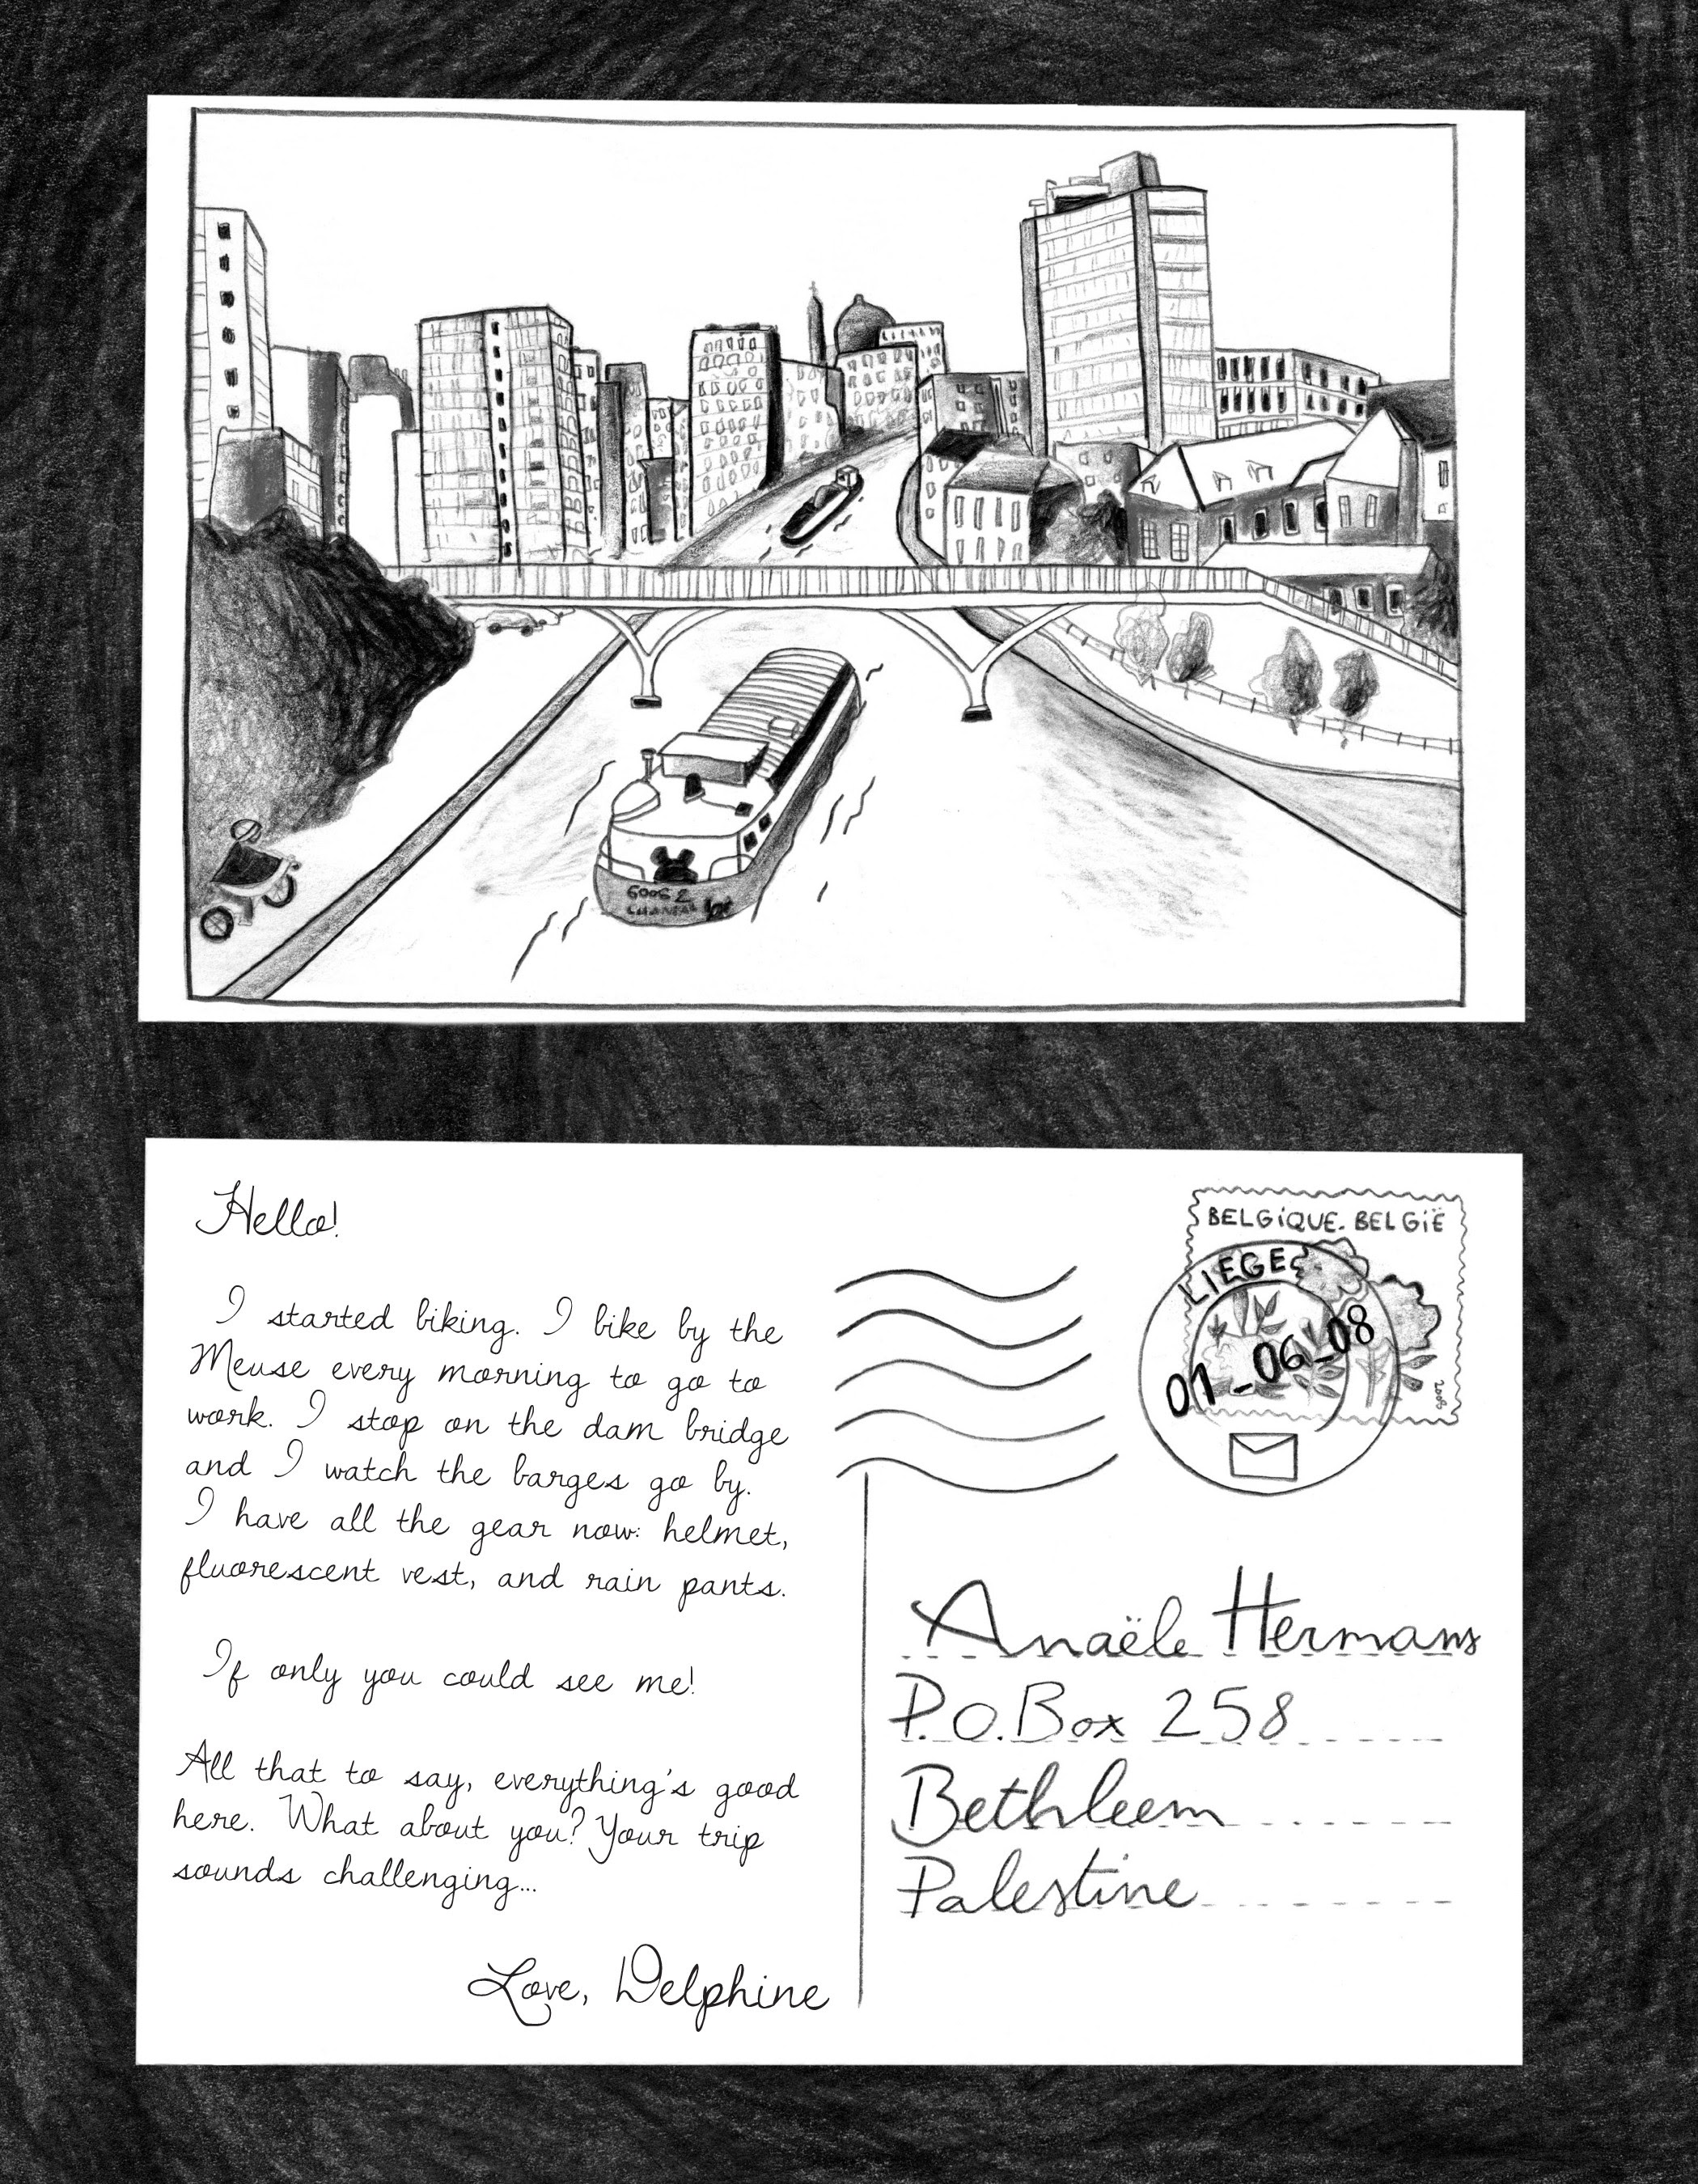 Hello!
I started biking. I bike by the
Meuse every morning to go to
work. I stop on the dam bridge
and I watch the barges go by.
I have all the gear now: helmet,
fluorescent vest, and rain pants.
If only you could see me!
All that to say, everything's good
here. What about you? Your trip
sounds challenging...
Love, Delphine
BELGiQUE. BELGiË
LIEGE
01_06_08
Anaële Hermans
P.O.Box 258
Bethleem
Palestine